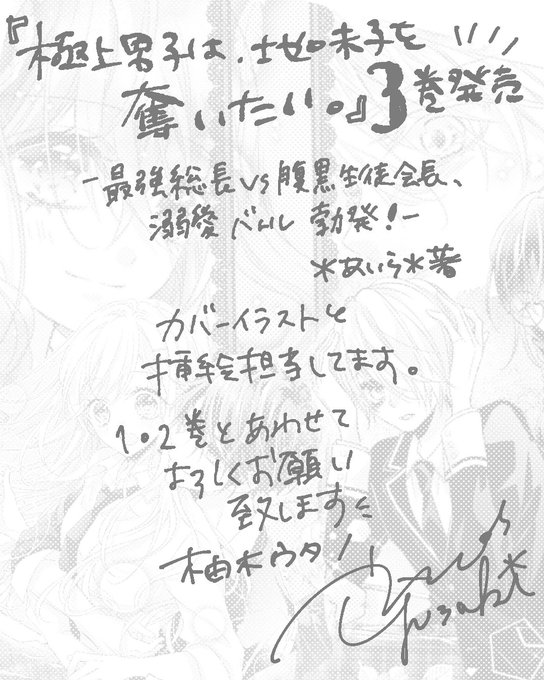 『極上男子は、地味子を
奪いたい。』3巻発売
ー最強総長VS腹黒生徒会長、
溺愛バトル勃発!ー
*あいら*著
カバーイラストと
挿絵担当してます。
1・2巻とあわせて
よろしくお願い
致します
柚木ウタノ